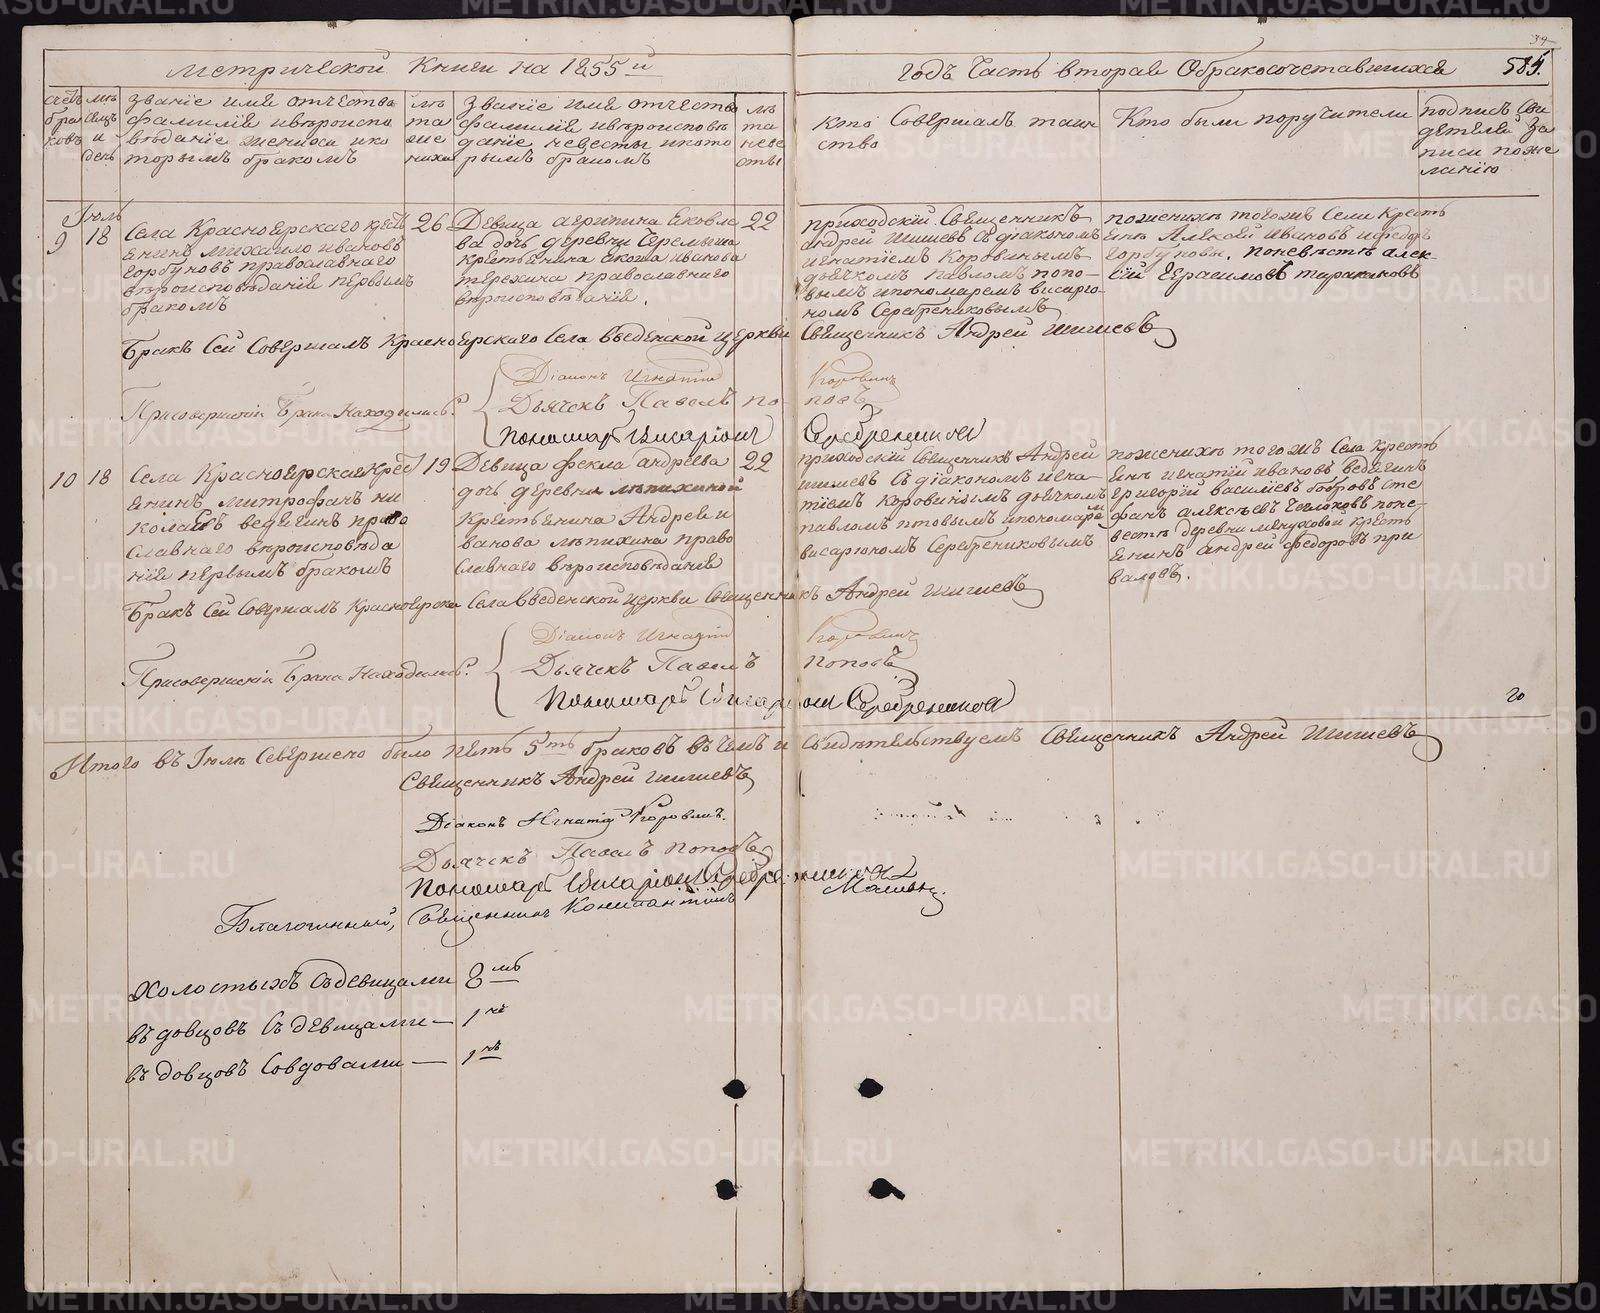 Метрической Книги на 1855 й
годъ Часть вторая Обракосочетавшихся
34
585.
счетъ браковъ
мѣсяцъ и день
званіе имя отчество
фамилія ивѣроиспо
вѣданіе жениха ико
торымъ бракомъ
лѣта жениха
званіе имя отчество
фамилія ивѣроисповѣ
даніе невесты икото
рымъ бракомъ
лѣта невесты
Кто Совершалъ таин
ство
Кто были поручители
подписъ Сви
детелей За
писи поже
ланію
Іюль
9 18
Села Красноярскаго крест
янинъ Михаило ивановъ
горбуновъ православнаго
вѣроисповѣданія первымъ
бракомъ
26
Девица агрипина Яковле
ва дочь деревни Черемыша
крестьянина якова иванова
терехина православнаго
вѣроисповѣданія.
22
приходскій Священникъ
андрей Шишевъ съ діакономъ
игнатіемъ Коровинымъ
дьячкомъ павломъ попо-
вымъ ипономаремъ висаріо-
номъ Серебрениковымъ
поженихѣ тогожъ Села Кресть
янѣ Алексей ивановъ ифедоръ
горбуновы. поневѣстѣ алек-
сій герасимовъ таракановъ
Бракъ Сей Совершалъ Красноярскаго Села введенской церкви Священникъ Андрей Шишевъ
Присовершеніи Брака Находились:
Діаконъ Игнатій Коровинъ
Дьячекъ Павелъ Поповъ
Пономарь Висаріонъ Серебрениковъ
10 18
Села Красноярскаго крест
янинъ митрофанъ ни
колаевъ ведягинъ право
славнаго вѣроисповѣда
нія первымъ бракомъ
19
Девица фекла андреева
дочь деревни лѣпихиной
Крестьянина Андрея и
ванова лѣпихина право
славнаго вѣроисповѣданія
22
приходскій Священникъ Андрей
шишевъ съ діакономъ игна-
тіемъ Коровинымъ дьячкомъ
павломъ поповымъ ипономаремъ
висаріономъ Серебрениковымъ
поженихѣ тогожъ Села Кресть
янѣ игнатій ивановъ ведягинъ
григорій василіевъ бобровъ сте
фанъ алексѣевъ Чегляковъ поне-
вестѣ деревни менуховой кресть
янинъ андрей федоровъ при
валовъ.
Бракъ Сей Совершалъ Красноярска Села Введенской церкви Священникъ Андрей Шишевъ
Присовершеніи Брака Находились:
Діаконъ Игнатій Коровинъ
Дьячекъ Павелъ Поповъ
Пономарь Висаріонъ Серебрениковъ
20
Итого въ Іюлѣ Совершено было пять 5ть браковъ въ чемъ и Свидѣтельствуемъ Священникъ Андрей Шишевъ
Священникъ Андрей шишевъ
Діаконъ Игнатій Коровинъ.
Дьячекъ Павелъ Поповъ
Пономарь Висаріонъ Серебрениковъ
Благочинный, Священникъ Константинъ
Холостыхъ съдевицами 8мь
въдовцовъ съ девицами — 1нъ
въдовцовъ Совдовами — 1нъ
METRIKI.GASO-URAL.RU